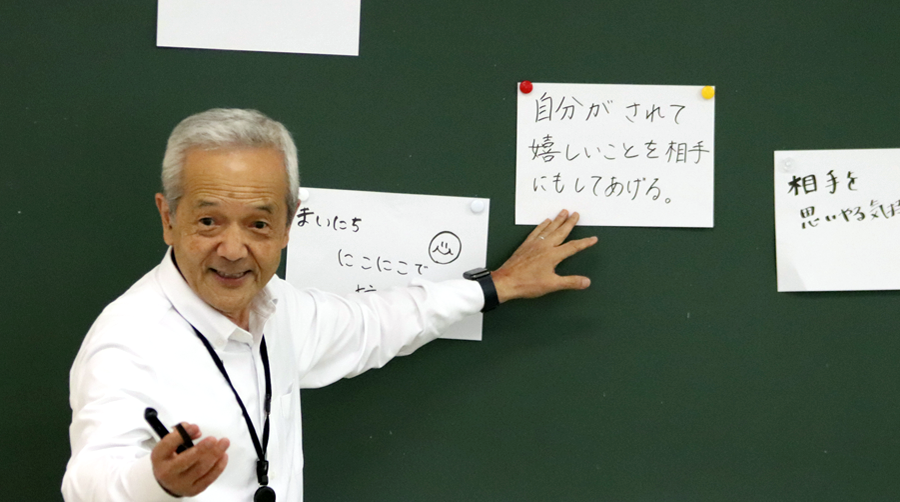 自分がされて
嬉しいことを相手
にもしてあげる。
まいにち
にこにこで
相手を
思いやる気持